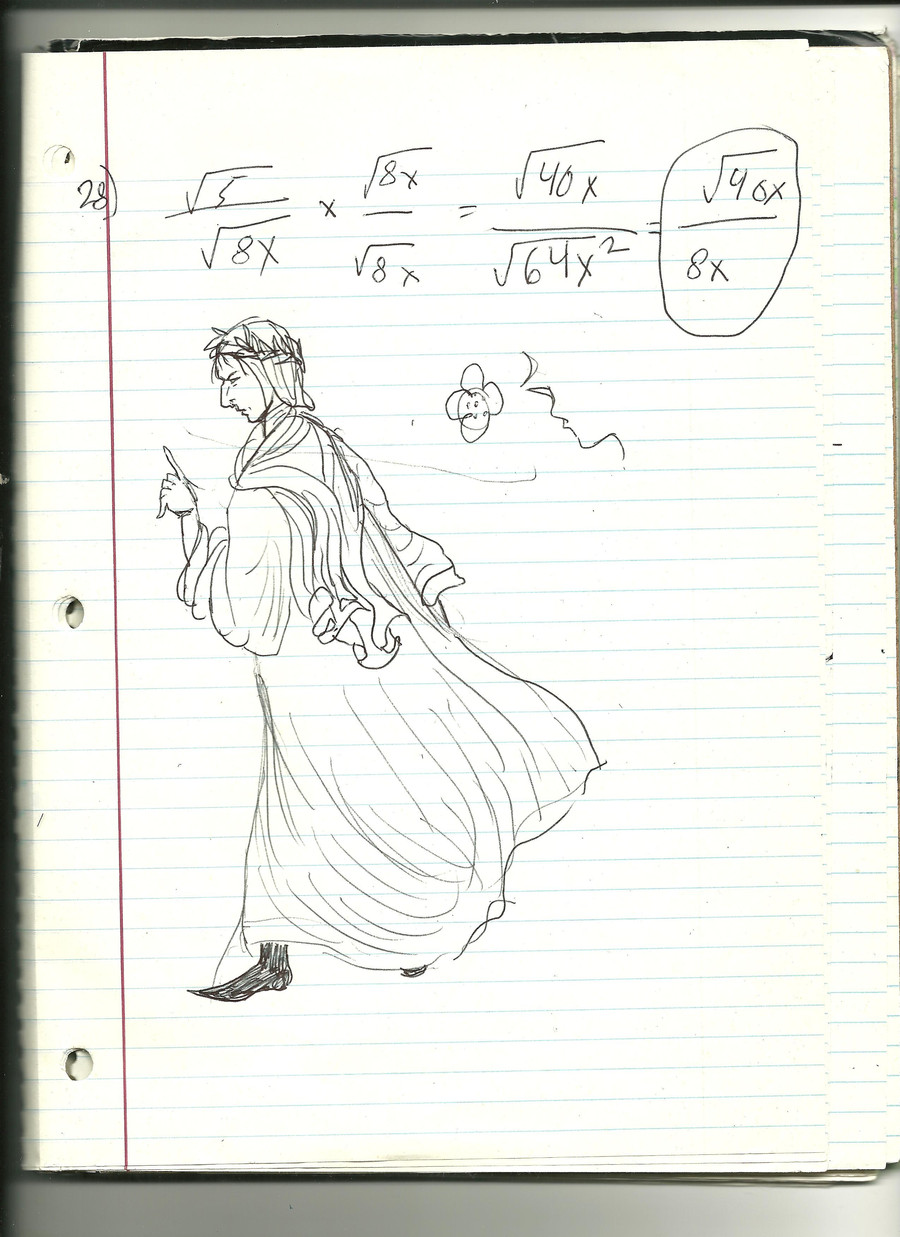 28) √5/√8x × √8x/√8x = √40x/√64x² = √40x/8x